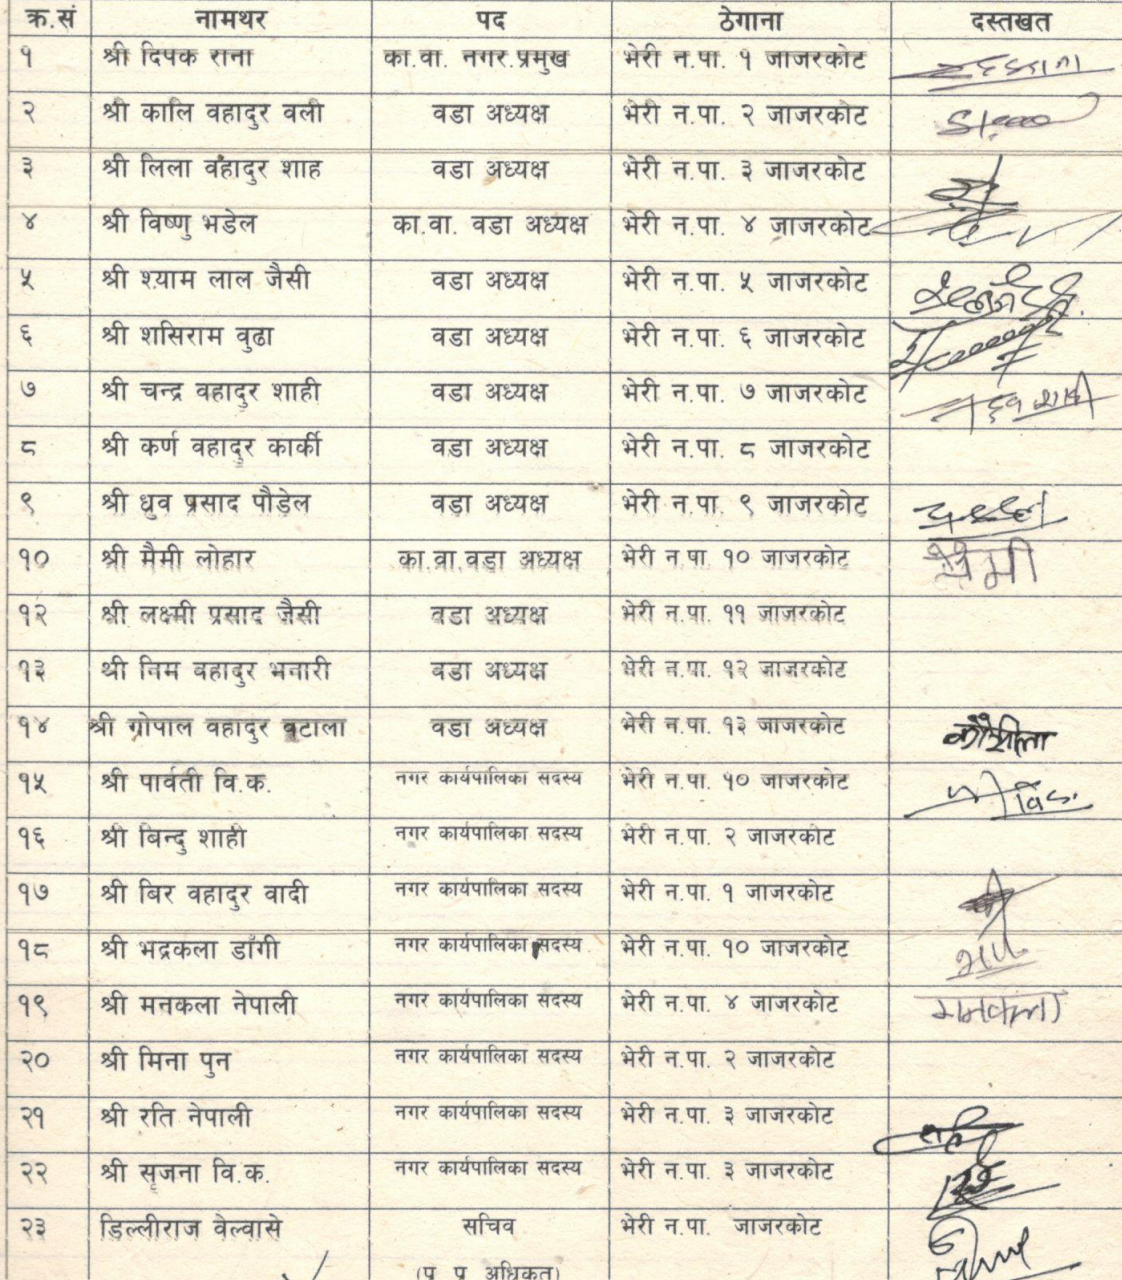 क्र.सं नामथर पद ठेगाना दस्तखत
१ श्री दिपक राना का.वा. नगर.प्रमुख भेरी न.पा. १ जाजरकोट
२ श्री कालि वहादुर वली वडा अध्यक्ष भेरी न.पा. २ जाजरकोट
३ श्री लिला वहादुर शाह वडा अध्यक्ष भेरी न.पा. ३ जाजरकोट
४ श्री विष्णु भडेल का.वा. वडा अध्यक्ष भेरी न.पा. ४ जाजरकोट
५ श्री श्याम लाल जैसी वडा अध्यक्ष भेरी न.पा. ५ जाजरकोट
६ श्री शसिराम वुढा वडा अध्यक्ष भेरी न.पा. ६ जाजरकोट
७ श्री चन्द्र वहादुर शाही वडा अध्यक्ष भेरी न.पा. ७ जाजरकोट
८ श्री कर्ण वहादुर कार्की वडा अध्यक्ष भेरी न.पा. ८ जाजरकोट
९ श्री धुव प्रसाद पौडेल वडा अध्यक्ष भेरी न.पा. ९ जाजरकोट
१० श्री मैमी लोहार का.वा.वडा अध्यक्ष भेरी न.पा. १० जाजरकोट मैमी
१२ श्री लक्ष्मी प्रसाद जैसी वडा अध्यक्ष भेरी न.पा. ११ जाजरकोट
१३ श्री निम वहादुर भनारी वडा अध्यक्ष भेरी न.पा. १२ जाजरकोट
१४ श्री गोपाल वहादुर वटाला वडा अध्यक्ष भेरी न.पा. १३ जाजरकोट कौशीला
१५ श्री पार्वती वि.क. नगर कार्यपालिका सदस्य भेरी न.पा. १० जाजरकोट
१६ श्री बिन्दु शाही नगर कार्यपालिका सदस्य भेरी न.पा. २ जाजरकोट
१७ श्री बिर वहादुर वादी नगर कार्यपालिका सदस्य भेरी न.पा. १ जाजरकोट
१८ श्री भद्रकला डाँगी नगर कार्यपालिका सदस्य भेरी न.पा. १० जाजरकोट
१९ श्री मनकला नेपाली नगर कार्यपालिका सदस्य भेरी न.पा. ४ जाजरकोट मनकला
२० श्री मिना पुन नगर कार्यपालिका सदस्य भेरी न.पा. २ जाजरकोट
२१ श्री रति नेपाली नगर कार्यपालिका सदस्य भेरी न.पा. ३ जाजरकोट
२२ श्री सृजना वि.क. नगर कार्यपालिका सदस्य भेरी न.पा. ३ जाजरकोट
२३ डिल्लीराज वेल्वासे सचिव भेरी न.पा. जाजरकोट
(प्र प्र अधिकृत)